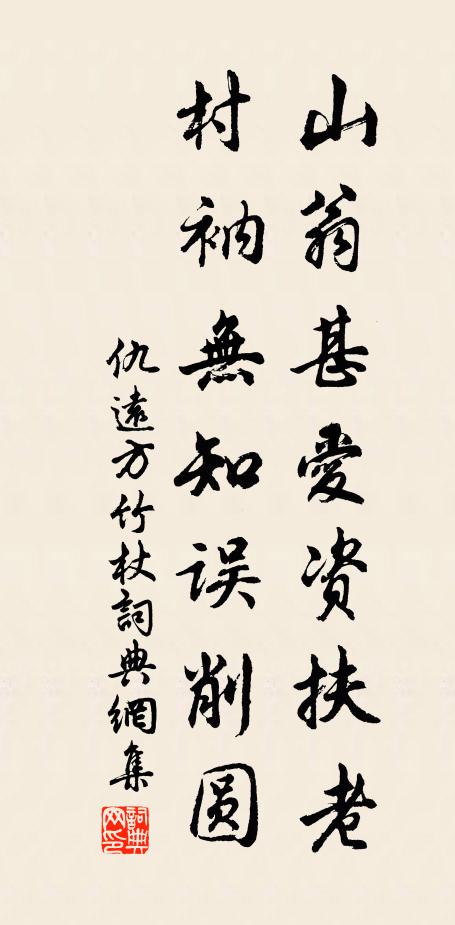 山翁甚愛資扶老
村衲無知误削圆
仇遠方竹杖詞典網集
詞典網印